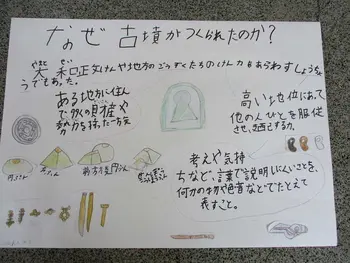 なぜ古墳がつくられたのか?
大和政けんや地方のごうぞくたちのけん力をあらわすしょうちょ
うでもあった。
ある地方に住ん
で多くの財産や
勢力を持った一族
高い地位にあって
他の人びとを服従
させ、
円ふん
方ふん
前方後円ふん
考えや気持
ちなど、言葉で説明しにくいことを、
何かの物や色音などでたとえて
表すこと。